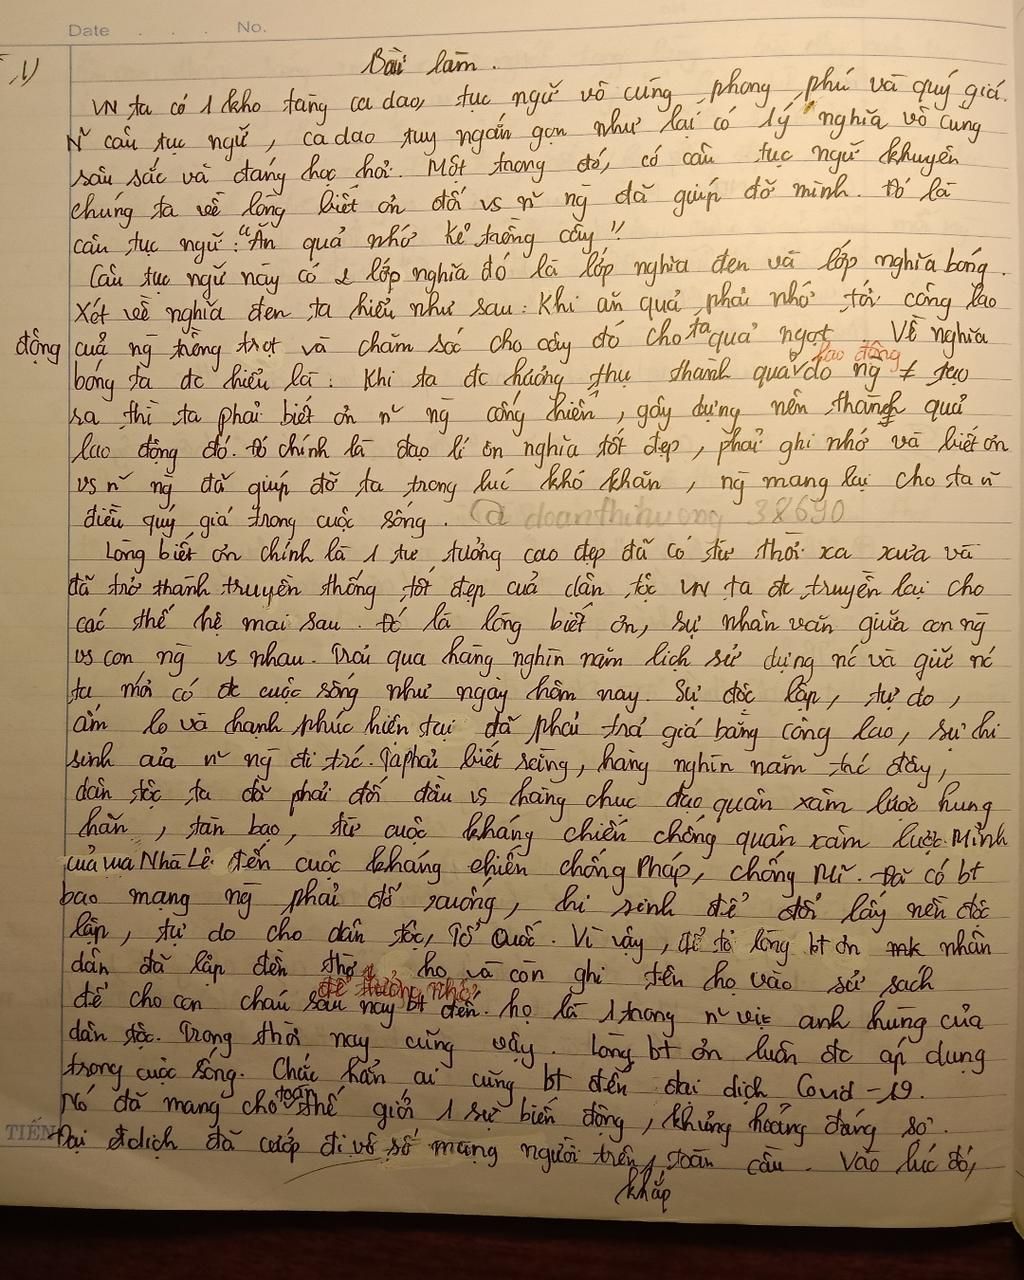 Date . . . No.
1)
Bài làm.
VN ta có 1 kho tàng ca dao, tục ngữ vô cùng phong phú và quý giá.
N~ câu tục ngữ, ca dao tuy ngắn gọn như lại có 1 ý nghĩa vô cùng
sâu sắc và đáng học hỏi. Một trong đó, có câu tục ngữ khuyên
chúng ta về lòng biết ơn đối vs n~ ng đã giúp đỡ mình. Đó là
câu tục ngữ: "Ăn quả nhớ kẻ trồng cây"
Câu tục ngữ này có 2 lớp nghĩa đó là lớp nghĩa đen và lớp nghĩa bóng.
Xét về nghĩa đen ta hiểu như sau: Khi ăn quả phải nhớ tới công lao
động của ng trồng trọt và chăm sóc cho cây đó cho ta quả ngọt. Về nghĩa
bóng ta đc hiểu là: Khi ta đc hưởng thụ thành quả lao động do ng ≠ tạo
ra thì ta phải biết ơn n~ ng cống hiến, gây dựng nên thành quả
lao động đó. Đó chính là đạo lí ơn nghĩa tốt đẹp, phải ghi nhớ và biết ơn
vs n~ ng đã giúp đỡ ta trong lúc khó khăn, ng mang lại cho ta n~
điều quý giá trong cuộc sống. @ doanthihuong 38690
Lòng biết ơn chính là 1 tư tưởng cao đẹp đã có từ thời xa xưa và
đã trở thành truyền thống tốt đẹp của dân tộc VN ta đc truyền lại cho
các thế hệ mai sau. Đó là lòng biết ơn, sự nhân văn giữa con ng
vs con ng vs nhau. Trải qua hàng nghìn năm lịch sử dựng nc và giữ nc
ta mới có đc cuộc sống như ngày hôm nay. Sự độc lập, tự do,
ấm lo và hạnh phúc hiện tại đã phải trả giá bằng công lao, sự hi
sinh của n~ ng đi trc. Ta phải biết rằng, hàng nghìn năm trc đây,
dân tộc ta đã phải đối đầu vs hàng chục đạo quân xâm lược hung
hãn, tàn bạo, từ cuộc kháng chiến chống quân xâm lược Minh
của Nhà Lê đến cuộc kháng chiến chống Pháp, chống Mĩ. Đã có bt
bao mạng ng phải đổ xuống, hi sinh để đổi lấy nền độc
lập, tự do cho dân tộc, Tổ Quốc. Vì vậy, để tỏ lòng bt ơn nhân
dân đã lập đền thờ để tưởng nhớ họ và còn ghi tên họ vào sử sách
để cho con cháu sau này bt đến họ là 1 trong n~ vị anh hùng của
dân tộc. Trong thời nay cũng vậy. Lòng bt ơn luôn đc áp dụng
trong cuộc sống. Chắc hẳn ai cũng bt đến đại dịch Covid-19.
Nó đã mang cho toàn thế giới 1 sự biến động, khủng hoảng đáng sợ.
TIẾN
Đại dịch đã cướp đi vô số mạng người trên khắp toàn cầu. Vào lúc đó,